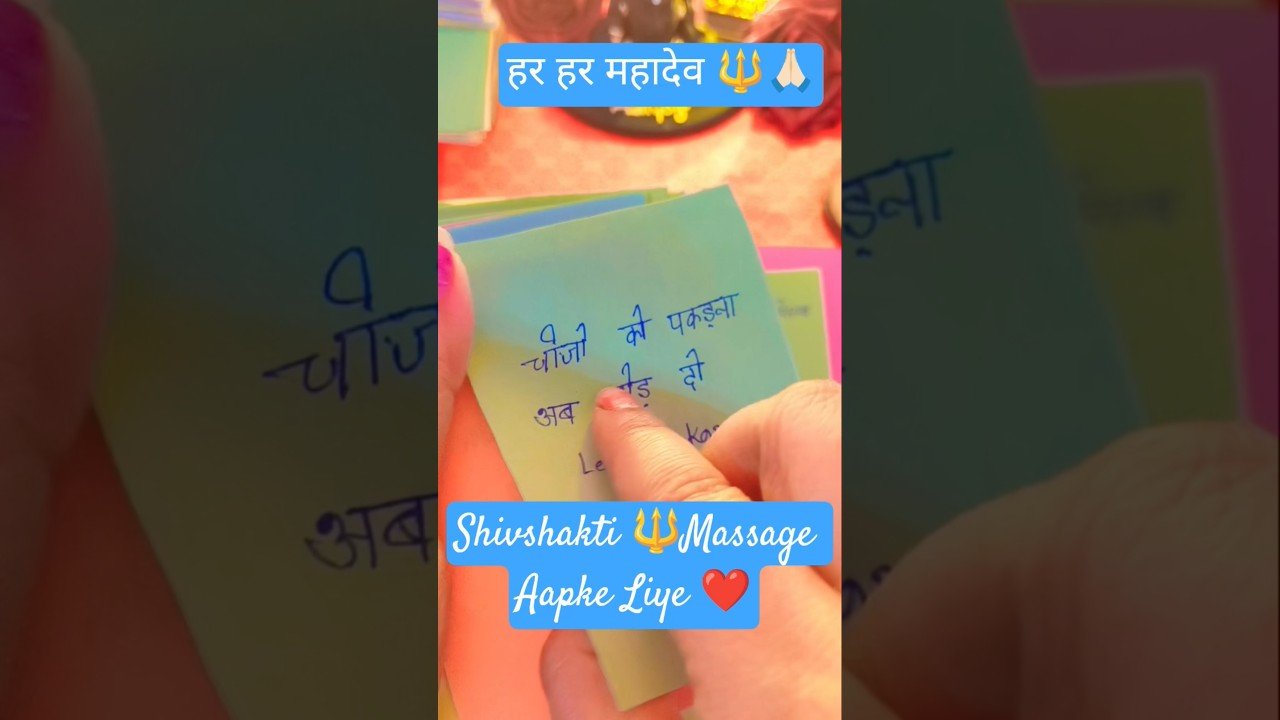 हर हर महादेव 🔱🙏🏻
चीजो को पकड़ना
अब दो
Shivshakti 🔱Massage
Aapke Liye ❤️